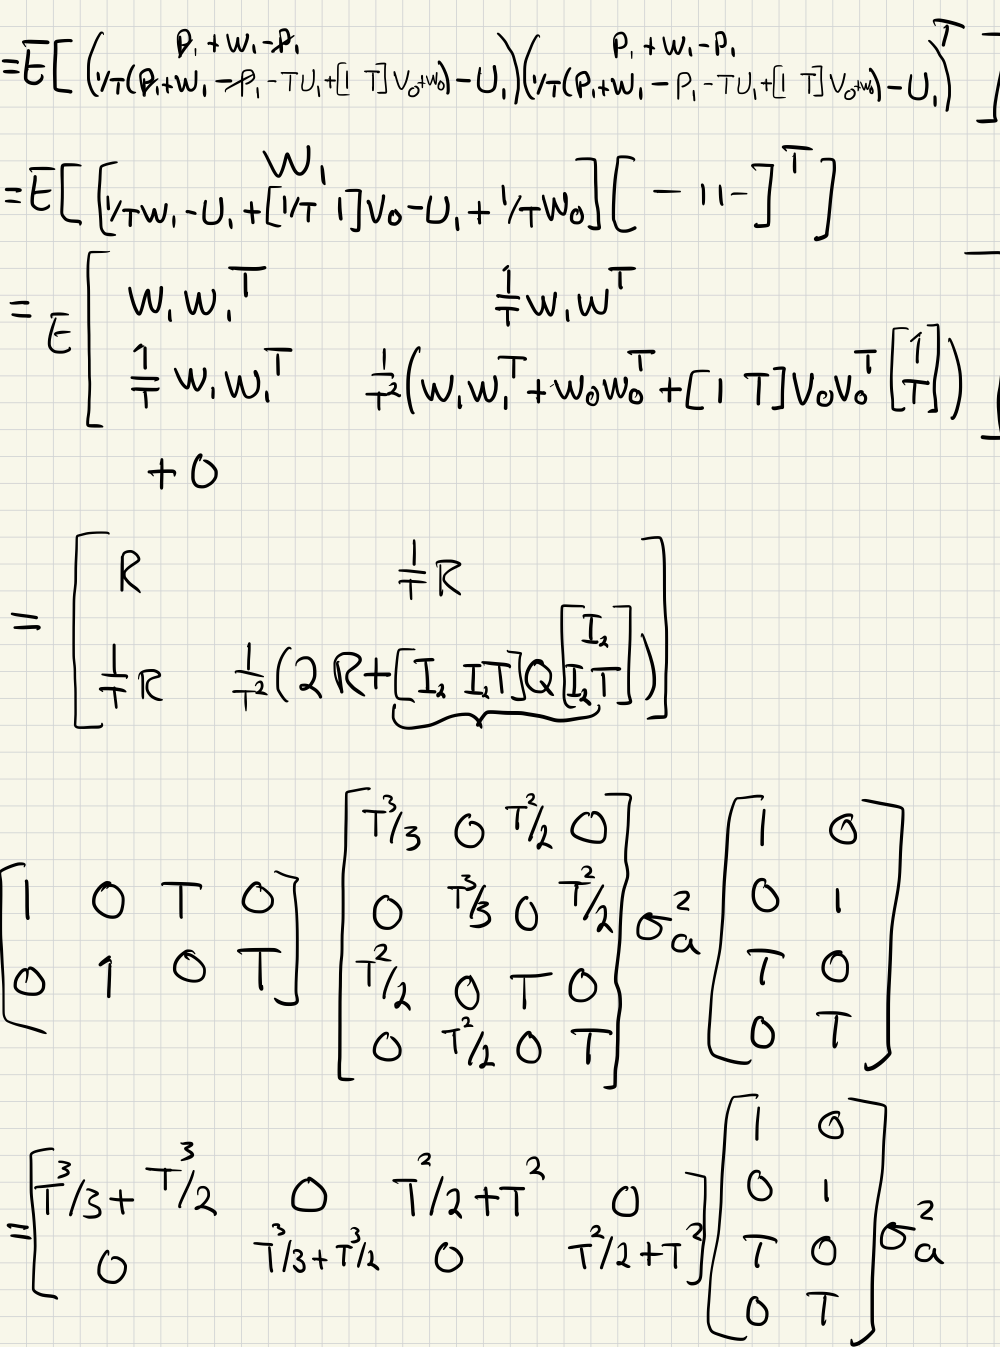 =E[(P₁+W₁-P₁ ; 1/T(P₁+W₁-P₁-TU₁+[1 T]V₀+W₀)-U₁)(P₁+W₁-P₁ ; 1/T(P₁+W₁-P₁-TU₁+[1 T]V₀+W₀)-U₁)ᵀ]
=E[[W₁ ; 1/TW₁-U₁+[1/T 1]V₀-U₁+1/TW₀][-11-]ᵀ]
=E[W₁W₁ᵀ 1/T W₁Wᵀ
1/T W₁W₁ᵀ 1/T²(W₁W₁ᵀ+W₀W₀ᵀ+[1 T]V₀V₀ᵀ[1 ; T])]
+0
=[R 1/T R
1/T R 1/T²(2R+[I₂ I₂T]Q[I₂ ; I₂T])]
[1 0 T 0 ; 0 1 0 T][T³/3 0 T²/2 0 ; 0 T³/3 0 T²/2 ; T²/2 0 T 0 ; 0 T²/2 0 T]σₐ²[1 0 ; 0 1 ; T 0 ; 0 T]
=[T³/3+T³/2 0 T²/2+T² 0 ; 0 T³/3+T³/2 0 T²/2+T²][1 0 ; 0 1 ; T 0 ; 0 T]σₐ²